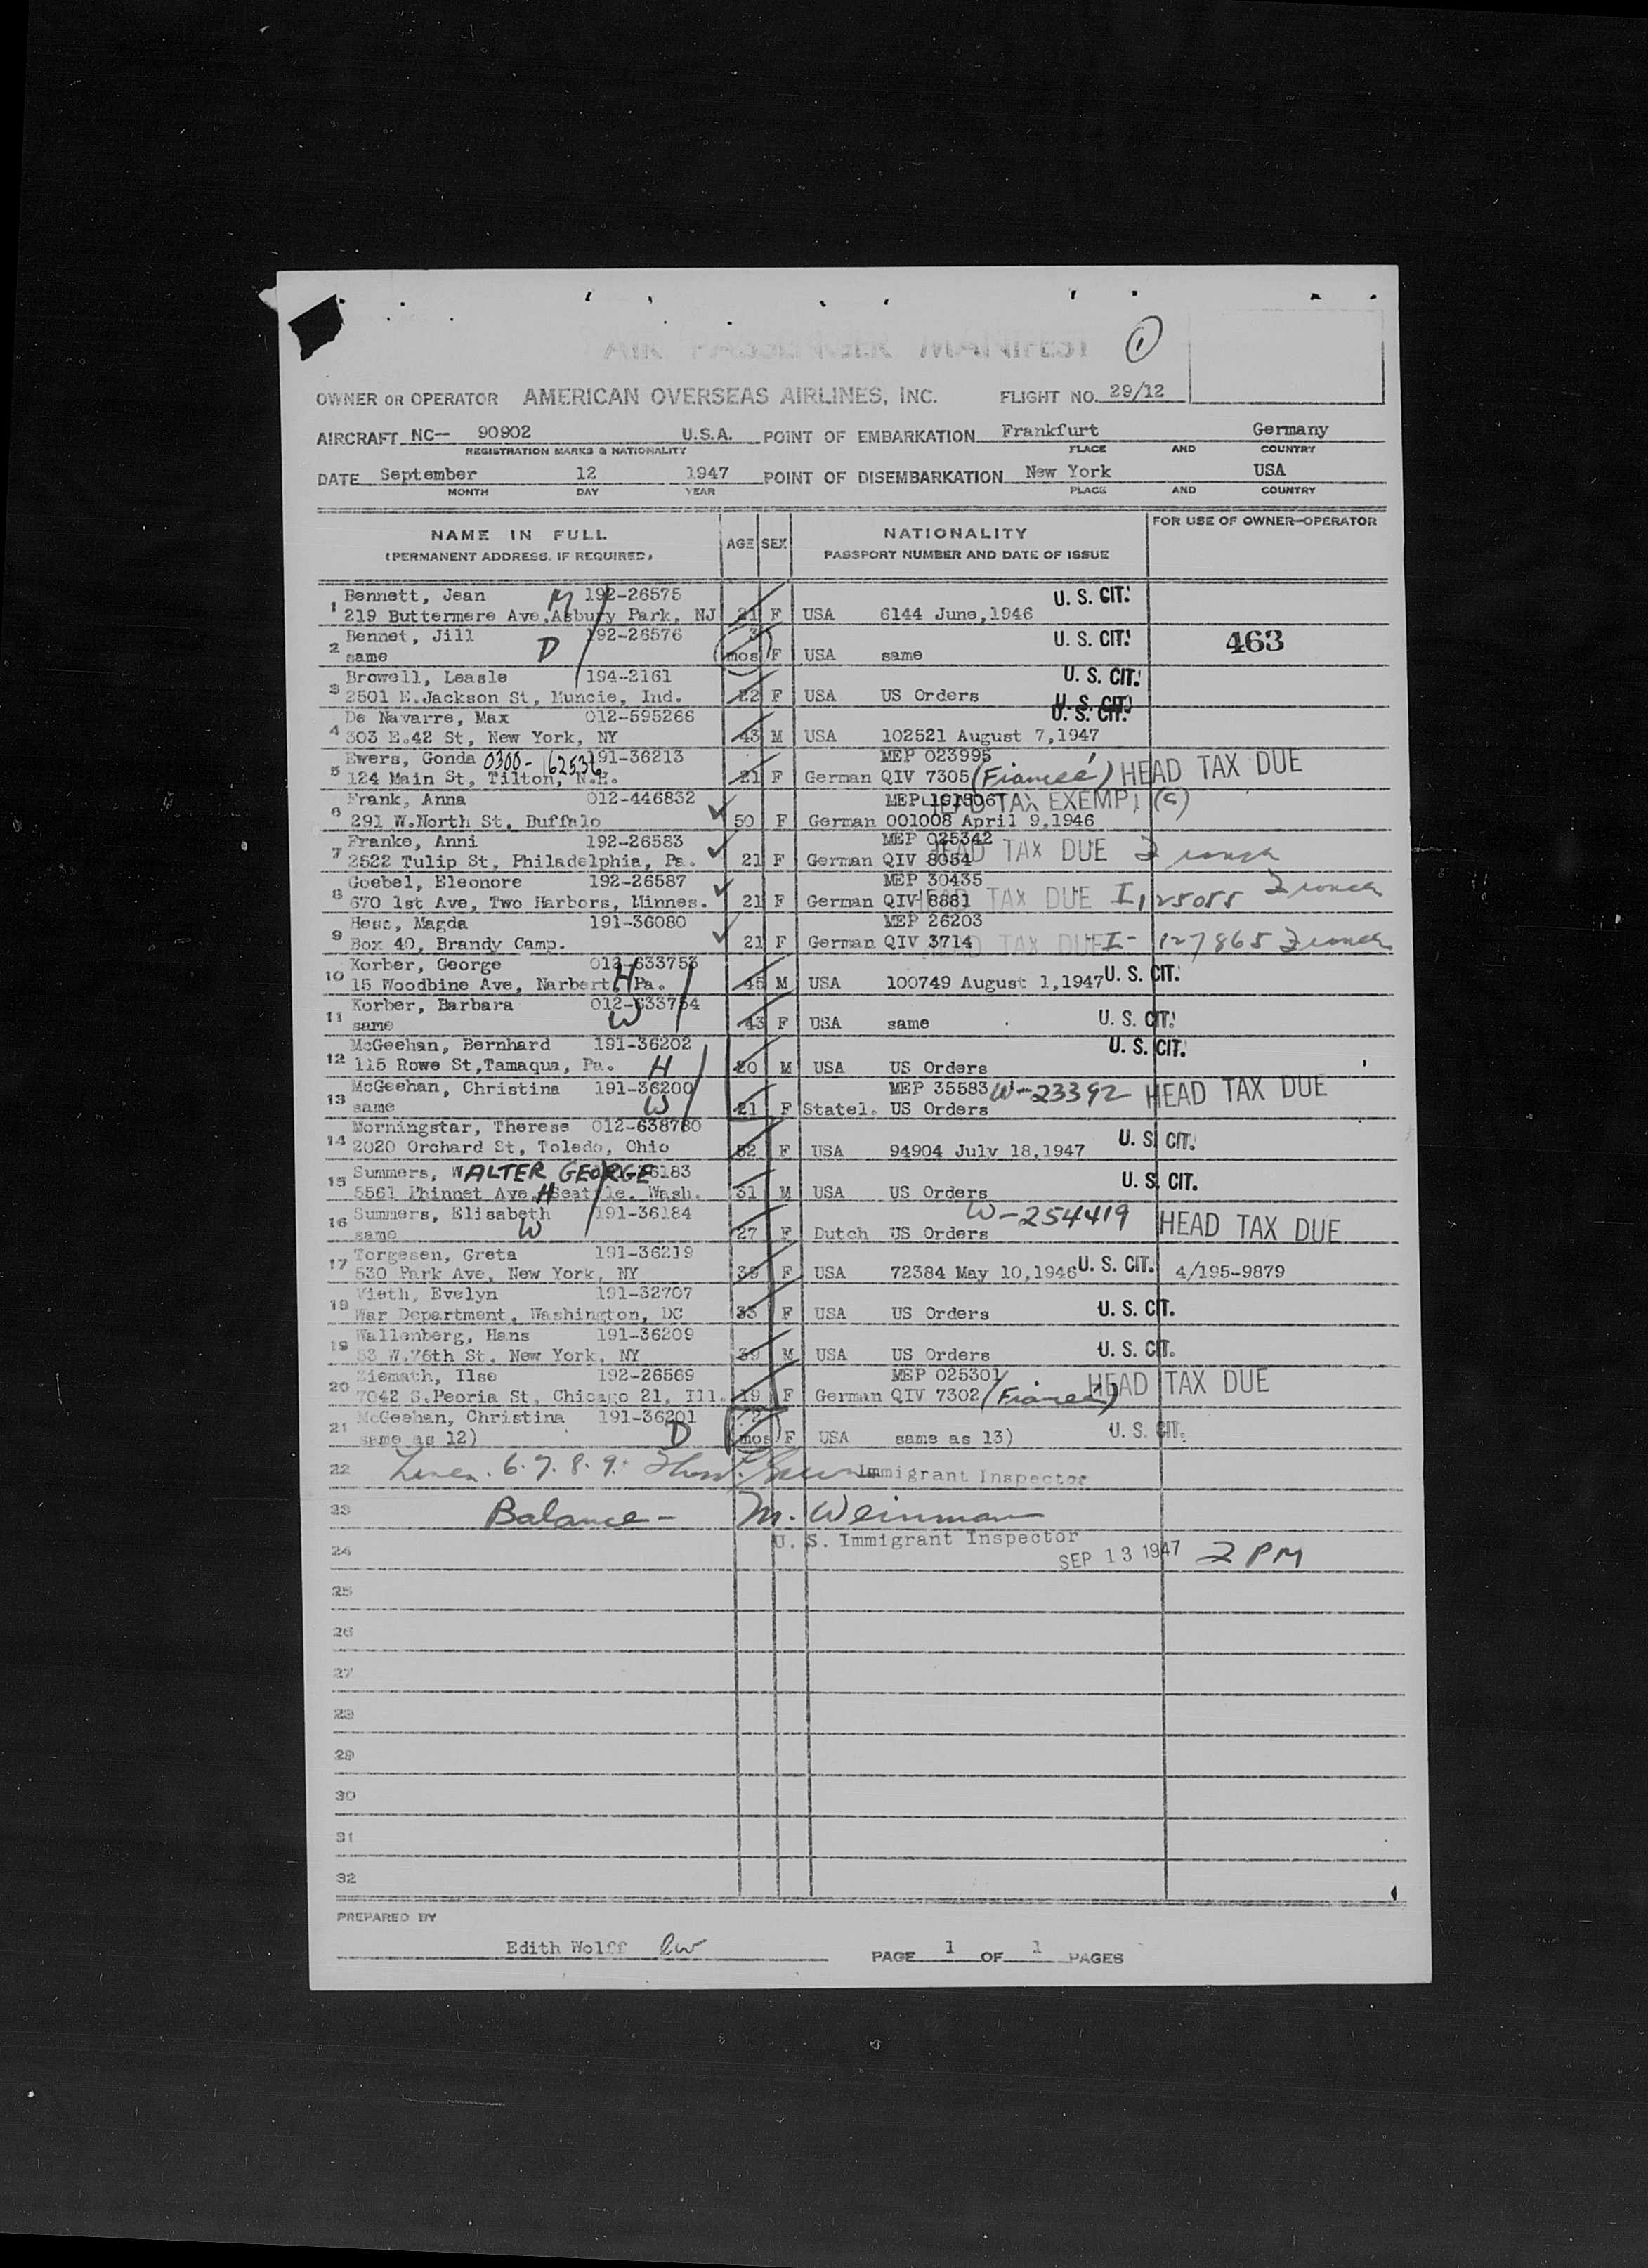 AIR PASSENGER MANIFEST
1
OWNER OR OPERATOR AMERICAN OVERSEAS AIRLINES, INC. FLIGHT NO. 29/12
AIRCRAFT NC— 90902 U.S.A. POINT OF EMBARKATION Frankfurt Germany
REGISTRATION MARKS & NATIONALITY PLACE AND COUNTRY
DATE September 12 1947 POINT OF DISEMBARKATION New York USA
MONTH DAY YEAR PLACE AND COUNTRY
NAME IN FULL AGE SEX NATIONALITY FOR USE OF OWNER—OPERATOR
(PERMANENT ADDRESS, IF REQUIRED) PASSPORT NUMBER AND DATE OF ISSUE
Bennett, Jean M 192-26575 U. S. CIT.
1 219 Buttermere Ave,Asbury Park, NJ 21 F USA 6144 June,1946
Bennet, Jill D 192-26576 3 U. S. CIT. 463
2 same mos F USA same
Browell, Leasle 194-2161 U. S. CIT.
3 2501 E.Jackson St, Muncie, Ind. 22 F USA US Orders U. S. CIT.
De Navarre, Max 012-595266 U. S. CIT.
4 303 E.42 St, New York, NY 43 M USA 102521 August 7,1947
Ewers, Gonda 0300-62536 191-36213 MEP 023995
5 124 Main St, Tilton, N.H. 21 F German QIV 7305 (Fianceé) HEAD TAX DUE
Frank, Anna 012-446832 MEP HEAD TAX EXEMPT
6 291 W.North St, Buffalo 50 F German 001008 April 9,1946
Franke, Anni 192-26583 MEP 025342
7 2522 Tulip St, Philadelphia, Pa. 21 F German QIV 8054 HEAD TAX DUE
Goebel, Eleonore 192-26587 MEP 30435
8 670 1st Ave, Two Harbors, Minnes. 21 F German QIV 8881 HEAD TAX DUE I,125055
Hess, Magda 191-36080 MEP 26203
9 Box 40, Brandy Camp. 21 F German QIV 3714 HEAD TAX DUE I- 127865
Korber, George 012-633753
10 15 Woodbine Ave, Narbert, Pa. H 45 M USA 100749 August 1,1947 U. S. CIT.
Korber, Barbara 012-633754
11 same W 43 F USA same U. S. CIT.
McGeehan, Bernhard 191-36202 U. S. CIT.
12 115 Rowe St,Tamaqua, Pa. H 20 M USA US Orders
McGeehan, Christina 191-36200 MEP 35583 W-23392 HEAD TAX DUE
13 same W 21 F Statel. US Orders
Morningstar, Therese 012-638780
14 2020 Orchard St, Toledo, Ohio 52 F USA 94904 July 18,1947 U. S. CIT.
Summers, WALTER GEORGE 6183
15 5561 Phinnet Ave, Seattle, Wash. H 31 M USA US Orders U. S. CIT.
Summers, Elisabeth 191-36184 W-254419
16 same W 27 F Dutch US Orders HEAD TAX DUE
Torgesen, Greta 191-36219
17 530 Park Ave, New York, NY 39 F USA 72384 May 10,1946 U. S. CIT. 4/195-9879
Vieth, Evelyn 191-32707
18 War Department, Washington, DC 33 F USA US Orders U. S. CIT.
Wallenberg, Hans 191-36209
19 53 W.76th St, New York, NY 39 M USA US Orders U. S. CIT.
Ziemath, Ilse 192-26569 MEP 025301
20 7042 S.Peoria St, Chicago 21, Ill. 19 F German QIV 7302 (Fianceé) HEAD TAX DUE
McGeehan, Christina 191-36201
21 same as 12) D mos F USA same as 13) U. S. CIT.
22 Lines. 6. 7. 8. 9. Immigrant Inspector
23 Balance - M. Weinman
U. S. Immigrant Inspector
24 SEP 13 1947 2 PM
25
26
27
28
29
30
31
32
PREPARED BY
Edith Wolff ew PAGE 1 OF 1 PAGES